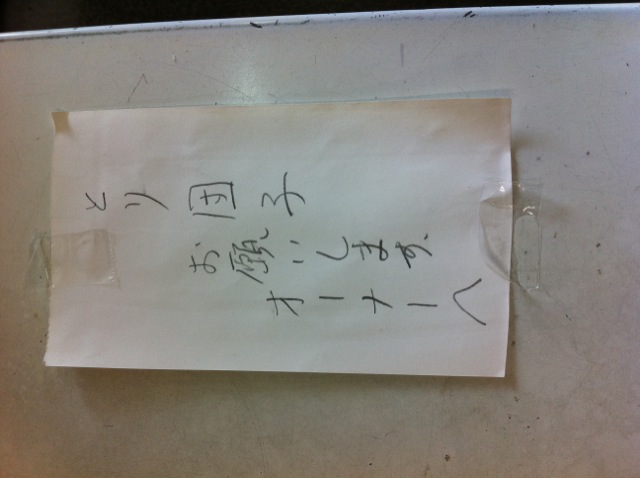 とり団子
お願いします。
オーナーへ